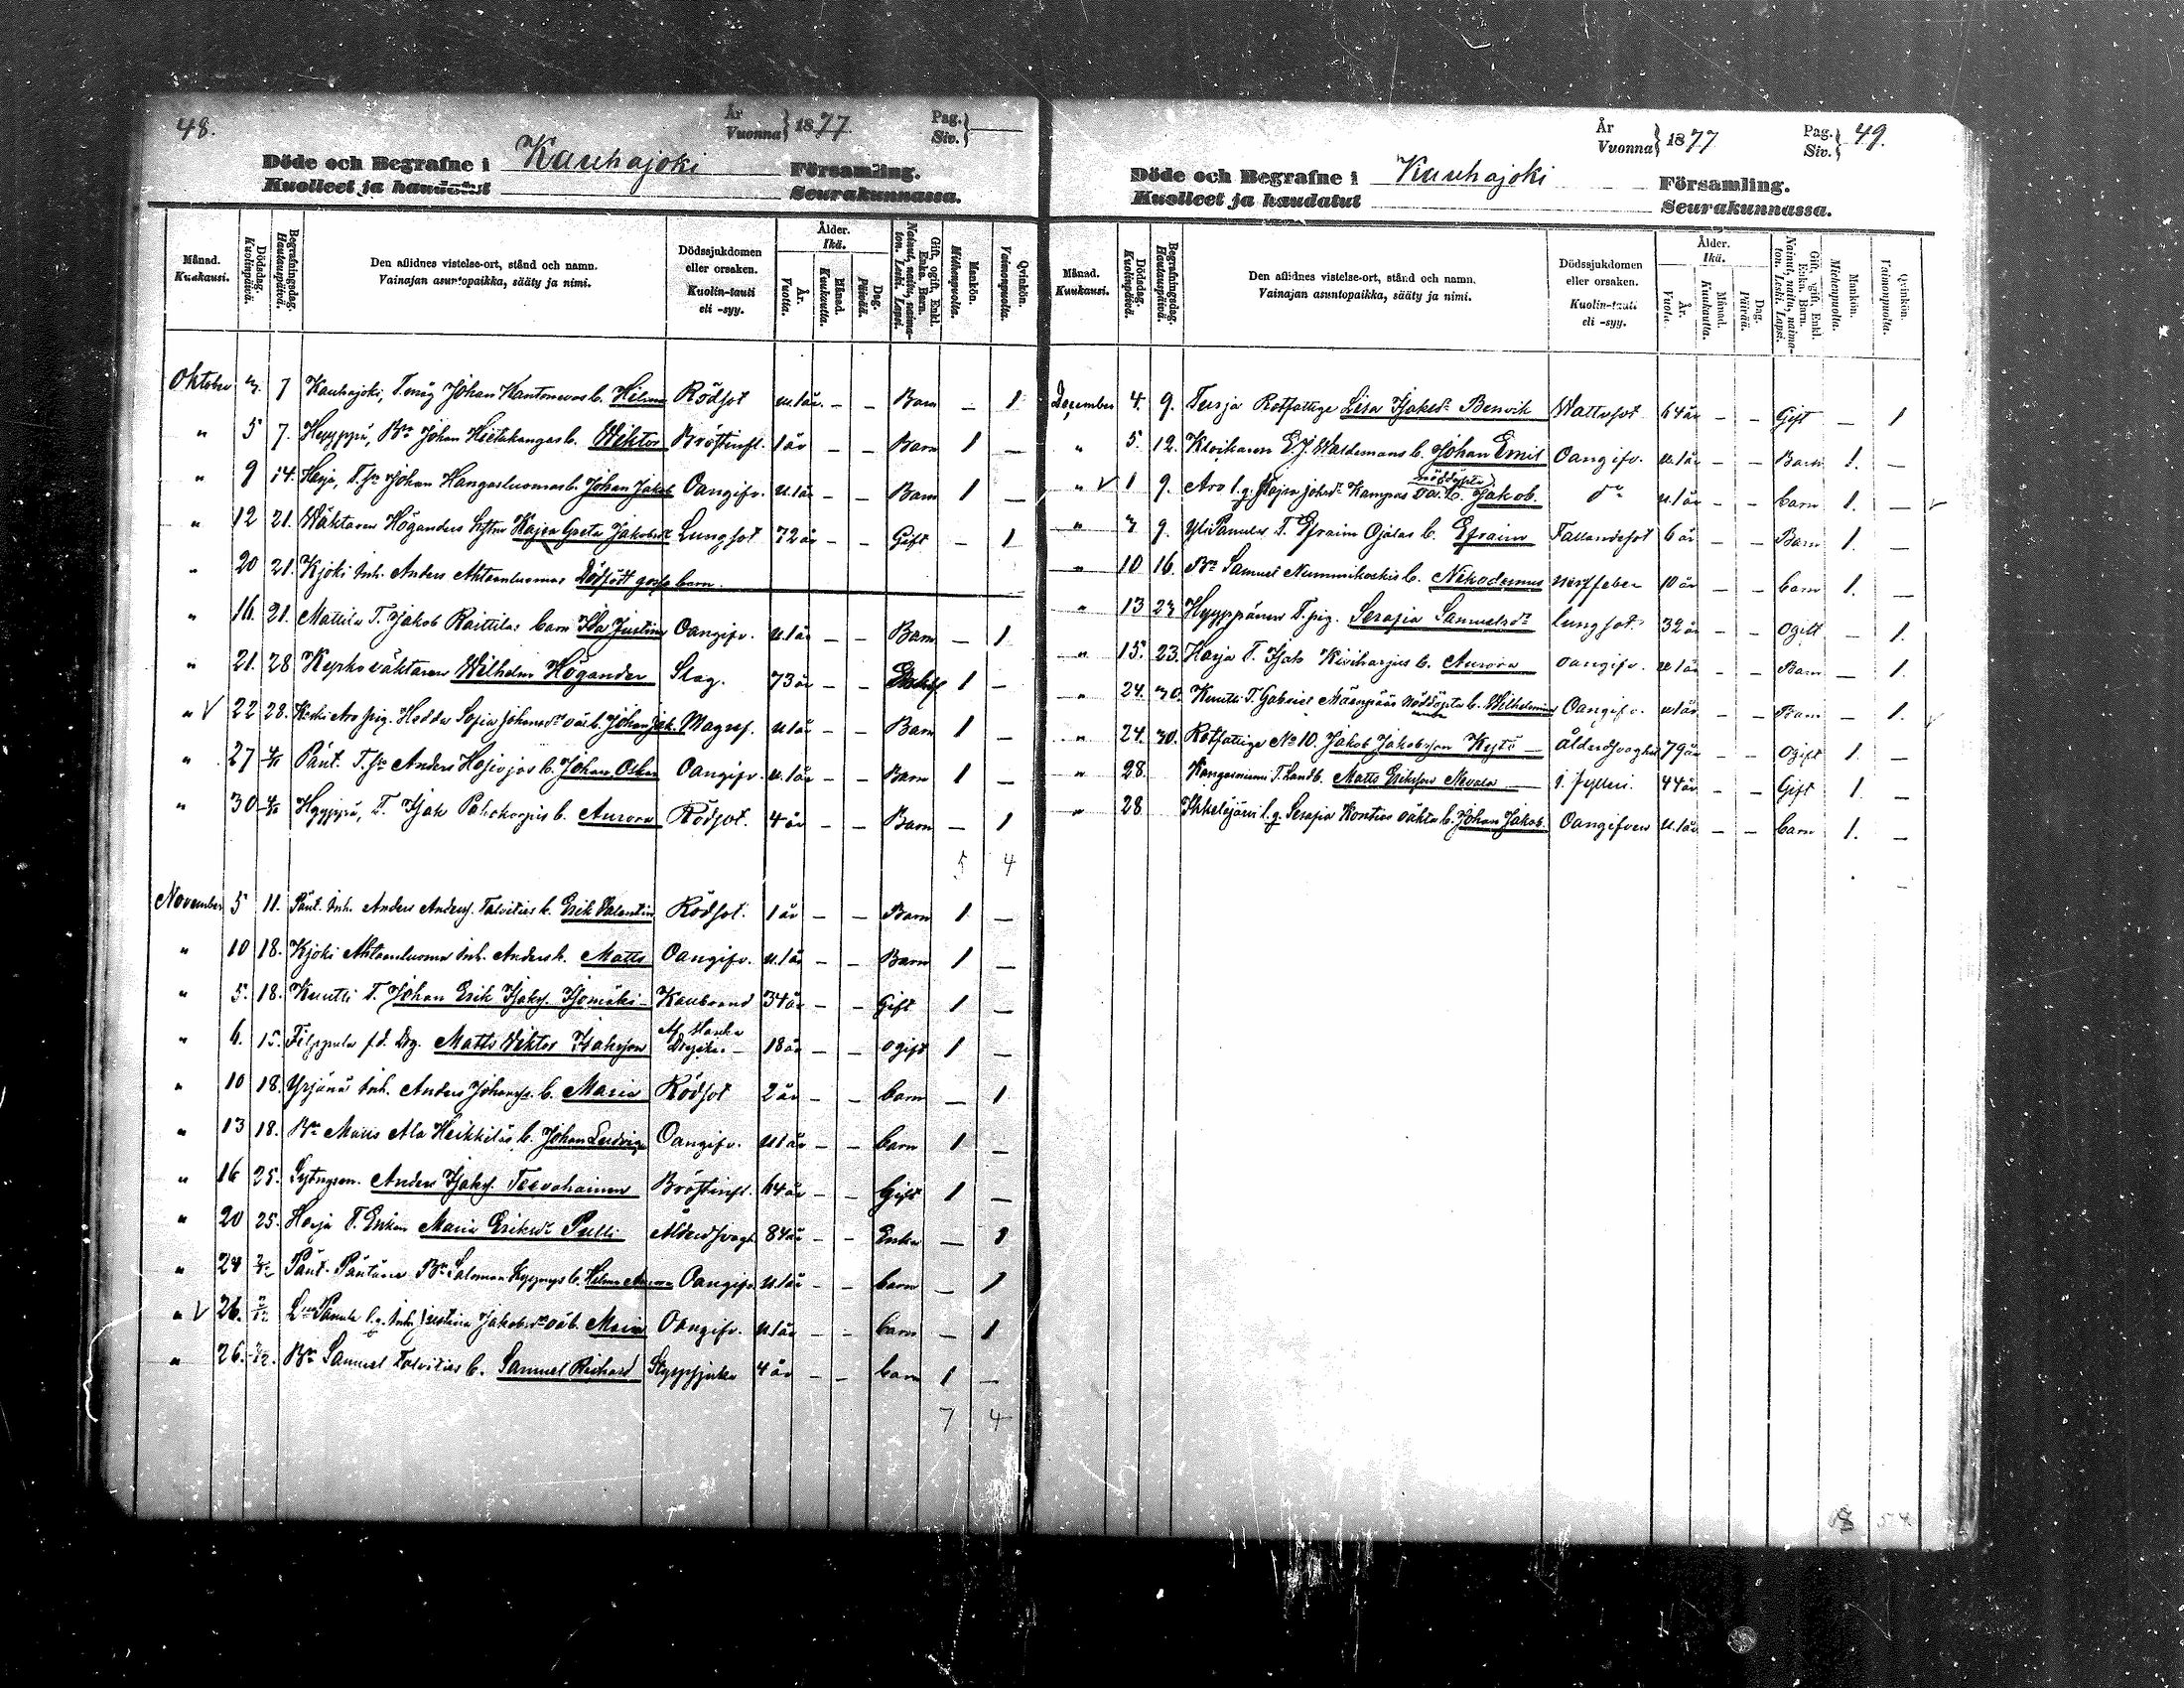 48.
År
Vuonna } 1877.
Pag.
Siv. }
Döde och Begrafne i Kauhajoki Församling.
Kuolleet ja haudatut Seurakunnassa.
Månad. Kuukausi. Dödsdag. Kuolinpäivä. Begrafningsdag. Hautauspäivä. Den aflidnes vistelse-ort, stånd och namn. Vainajan asuntopaikka, sääty ja nimi. Dödssjukdomen eller orsaken. Kuolin-tauti eli -syy. Ålder. Ikä. År. Vuotta. Månad. Kuukautta. Dag. Päivää. Gift, ogift, Enkl. Enka. Barn. Nainut, naitu, naimaton. Leski. Lapsi. Mankön. Miehenpuolta. Qvinkön. Vaimonpuolta.
Oktober 3. 7 Kauhajoki, Johan b. Hilma Rödsot u. 1 år. – – Barn – 1
" 5 7. Hyyppä, Bn Johan Hietakangas b. Wiktor Bröstinfl. 1 år – – Barn 1 –
" 9 14. Harja, T. sn Johan Hangasluomas b. Johan Jakob Oangifv. u. 1 år – – Barn 1 –
" 12 21. Wäktaren Höganders hustru Kajsa Greta Jakobsdr Lungsot 72 år – – Gift – 1
" 20 21. Kjoki Inh. Anders Ahteenluomas Dödfödt gosse barn.
" 16. 21. Mattila T. Jakob Raittilas barn Ida Justina Oangifv. u. 1 år – – Barn – 1
" 21. 28 Kyrkoväktaren Wilhelm Högander Slag. 73 år – – Enkl. 1 –
" V 22 28. Aro pig. Hedda Sofia Johansdr oäb. Johan Jak. u. 1 år – – Barn 1 –
" 27 4/11 Pänt. T. sn Anders b. Johan Oskar Oangifv. u. 1 år – – Barn 1 –
" 30 4/11 Hyyppä, T. Isak b. Aurora Rödsot. 4 år – – Barn – 1
5 4
November 5 11. Pänt. Inh. Anders Anderss. Talvities b. Erik Valentin Rödsot. 1 år – – Barn 1 –
" 10 18. Kjoki Ahteenluoma Inh. Anders b. Matts Oangifv. u. 1 år – – Barn 1 –
" 5. 18. Knutti T. Johan Erik Isaks. Isomäki – Kallbrand 34 år – – Gift 1 –
" 6. 15. Filppula f.d. Drg. Matts Wiktor Isaksson Af starka Drycker – 18 år – – ogift 1 –
" 10 18. Yrjänä Inh. Anders Johanss. b. Maria Rödsot 2 år – – barn – 1
" 13 18. Bn Matts Ala Heikkiläs b. Johan Ludvig Oangifv. u 1 år – – barn 1 –
" 16 25. Sytningsm. Anders Isaks. Teevahainen Bröstinfl. 64 år – – Gift 1 –
" 20 25. Harja T. Enkan Maria Eriksdr Pulli Ålderdsvagh. 84 år – – Enka – 1
" 24 2/12 Pänt. Päntäne Bn Salomon b. Hilma Aurora Oangifv. u. 1 år – – barn – 1
" V 26. 2/12 Panula l.g. Inh. Justina Jakobsdr oäb. Maria Oangifv. u 1 år – – barn – 1
" 26. 2/12. Bn Samuel Talvities b. Samuel Richard Strypsjuka 4 år – – barn 1 –
7 4
År
Vuonna } 1877
Pag.
Siv. } 49.
Döde och Begrafne i Kauhajoki Församling.
Kuolleet ja haudatut Seurakunnassa.
Månad. Kuukausi. Dödsdag. Kuolinpäivä. Begrafningsdag. Hautauspäivä. Den aflidnes vistelse-ort, stånd och namn. Vainajan asuntopaikka, sääty ja nimi. Dödssjukdomen eller orsaken. Kuolin-tauti eli -syy. Ålder. Ikä. År. Vuotta. Månad. Kuukautta. Dag. Päivää. Gift, ogift, Enkl. Enka. Barn. Nainut, naitu, naimaton. Leski. Lapsi. Mankön. Miehenpuolta. Qvinkön. Vaimonpuolta.
December 4. 9. Rotfattige Lisa Isaksdr Benvik Wattusot 64 år – – Gift – 1
" 5. 12. Klockaren E. J. Waldemans b. Johan Emil Oangifv. u. 1 år – – Barn 1. –
" V 1 9. Aro l.g. Kajsa Johsdr Kampas oä. b. nöddöpta Jakob. do u. 1 år – – barn 1. –
" 3 9. Yli Panula T. Efraim Ojalas b. Efraim Fallandesot 6 år – – Barn 1. –
" 10 16. Bn Samuel Nummikoskis b. Nikodemus Nerffeber 10 år – – barn 1. –
" 13 23 Hyyppänen T. pig. Serafia Samuelsdr lungsot. 32 år – – ogift – 1.
" 15. 23. Harja T. Isak Kiviharjus b. Aurora oangifv. u 1 år – – Barn – 1.
" 24. 30. Knutti T. Gabriel Mäenpääs nöddöpta b. Wilhelmina Oangifv. u 1 år – – Barn – 1.
" 24. 30. Rotfattige No 10. Jakob Jakobsson Kytö – ålderdsvaghet 79 år – – Ogift 1. –
" 28. Kangasniemi T. Landb. Matts Eriksson Nevala – i fylleri. 44 år – – Gift 1. –
" 28 Ikkeläjärvi l.g. Serafia Kontios oäkta b. Johan Jakob. Oangifven u. 1 år – – barn 1. –
54